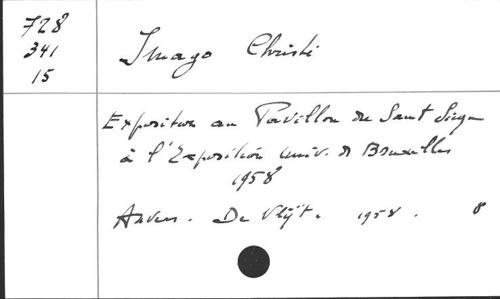 728
341
15
Imago Christi
Exposition au Pavillon du Saint Siège
à l'Exposition univ. de Bruxelles
1958
Anvers. De Vlijt. 1958. 8